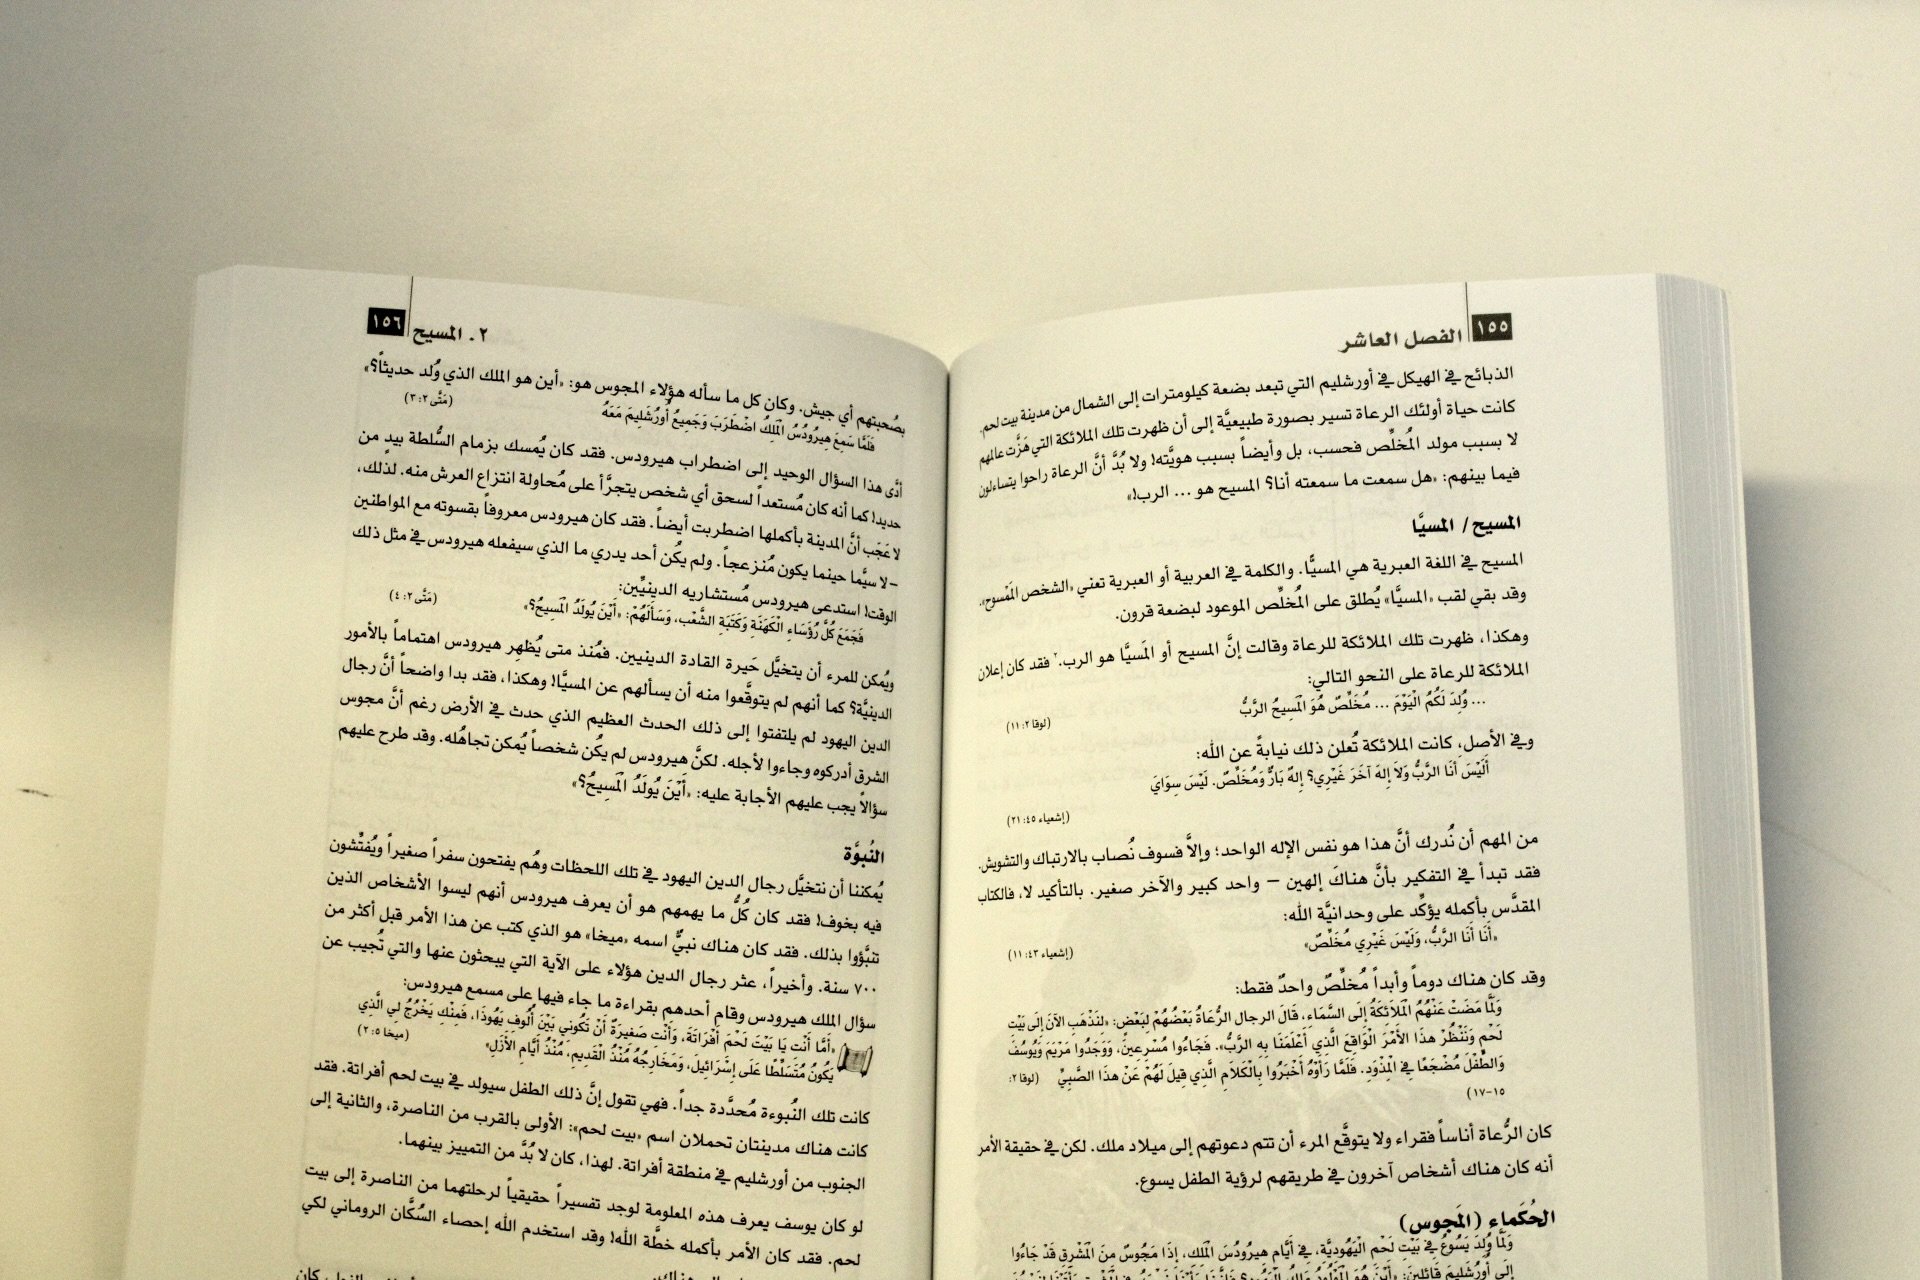 ١٥٥ الفصل العاشر
الذبائح في الهيكل في أورشليم التي تبعد بضعة كيلومترات إلى الشمال من مدينة بيت لحم.
كانت حياة أولئك الرعاة تسير بصورة طبيعيَّة إلى أن ظهرت تلك الملائكة التي هَزَّت عالمهم
لا بسبب مولد المُخلِّص فحسب، بل وأيضاً بسبب هويَّته! ولا بُدَّ أنَّ الرعاة راحوا يتساءلون
فيما بينهم: «هل سمعت ما سمعته أنا؟ المسيح هو ... الرب!»
المسيح/ المسيَّا
المسيح في اللغة العبرية هي المسيَّا. والكلمة في العربية أو العبرية تعني «الشخص المَمْسوح».
وقد بقي لقب «المسيَّا» يُطلق على المُخلِّص الموعود لبضعة قرون.
وهكذا، ظهرت تلك الملائكة للرعاة وقالت إنَّ المسيح أو المَسيَّا هو الرب.٢ فقد كان إعلان
الملائكة للرعاة على النحو التالي:
... وُلِدَ لَكُمُ الْيَوْمَ ... مُخَلِّصٌ هُوَ الْمَسِيحُ الرَّبُّ
(لوقا ٢: ١١)
وفي الأصل، كانت الملائكة تُعلن ذلك نيابةً عن الله:
أَلَيْسَ أَنَا الرَّبُّ وَلاَ إِلهَ آخَرَ غَيْرِي؟ إِلهٌ بَارٌّ وَمُخَلِّصٌ. لَيْسَ سِوَايَ
(إشعياء ٤٥: ٢١)
من المهم أن نُدرك أنَّ هذا هو نفس الإله الواحد؛ وإلاَّ فسوف نُصاب بالارتباك والتشويش.
فقد تبدأ في التفكير بأنَّ هناك إلهين – واحد كبير والآخر صغير. بالتأكيد لا، فالكتاب
المقدَّس بأكمله يؤكِّد على وحدانيَّة الله:
«أَنَا أَنَا الرَّبُّ، وَلَيْسَ غَيْرِي مُخَلِّصٌ»
(إشعياء ٤٣: ١١)
وقد كان هناك دوماً وأبداً مُخلِّصٌ واحدٌ فقط:
وَلَمَّا مَضَتْ عَنْهُمُ الْمَلاَئِكَةُ إِلَى السَّمَاءِ، قَالَ الرجال الرُّعَاةُ بَعْضُهُمْ لِبَعْضٍ: «لِنَذْهَبِ الآنَ إِلَى بَيْتِ
لَحْمٍ وَنَنْظُرْ هذَا الأَمْرَ الْوَاقِعَ الَّذِي أَعْلَمَنَا بِهِ الرَّبُّ». فَجَاءُوا مُسْرِعِينَ، وَوَجَدُوا مَرْيَمَ وَيُوسُفَ
وَالطِّفْلَ مُضْجَعًا فِي الْمِذْوَدِ. فَلَمَّا رَأَوْهُ أَخْبَرُوا بِالْكَلاَمِ الَّذِي قِيلَ لَهُمْ عَنْ هذَا الصَّبِيِّ (لوقا ٢:
١٥-١٧)
كان الرُّعاة أناساً فقراء ولا يتوقَّع المرء أن تتم دعوتهم إلى ميلاد ملك. لكن في حقيقة الأمر
أنه كان هناك أشخاص آخرون في طريقهم لرؤية الطفل يسوع.
الحُكَماء (المَجوس)
وَلَمَّا وُلِدَ يَسُوعُ فِي بَيْتِ لَحْمِ الْيَهُودِيَّةِ، فِي أَيَّامِ هِيرُودُسَ الْمَلِكِ، إِذَا مَجُوسٌ مِنَ الْمَشْرِقِ قَدْ جَاءُوا
إِلَى أُورُشَلِيمَ قَائِلِينَ: «أَيْنَ هُوَ الْمَوْلُودُ مَلِكُ الْيَهُودِ؟
٢. المسيح ١٥٦
بصُحبتهم أي جيش. وكان كل ما سأله هؤلاء المجوس هو: «أين هو الملك الذي وُلد حديثاً؟»
فَلَمَّا سَمِعَ هِيرُودُسُ الْمَلِكُ اضْطَرَبَ وَجَمِيعُ أُورُشَلِيمَ مَعَهُ (مَتَّى ٢: ٣)
أدَّى هذا السؤال الوحيد إلى اضطراب هيرودس. فقد كان يُمسك بزمام السُّلطة بيدٍ من
حديد! كما أنه كان مُستعداً لسحق أي شخص يتجرَّأ على مُحاولة انتزاع العرش منه. لذلك،
لا عَجَب أنَّ المدينة بأكملها اضطربت أيضاً. فقد كان هيرودس معروفاً بقسوته مع المواطنين
-لا سيَّما حينما يكون مُنزعجاً. ولم يكُن أحد يدري ما الذي سيفعله هيرودس في مثل ذلك
الوقت! استدعى هيرودس مُستشاريه الدينيِّين:
فَجَمَعَ كُلَّ رُؤَسَاءِ الْكَهَنَةِ وَكَتَبَةِ الشَّعْب، وَسَأَلَهُمْ: «أَيْنَ يُولَدُ الْمَسِيحُ؟» (مَتَّى ٢: ٤)
ويُمكن للمرء أن يتخيَّل حَيرة القادة الدينيين. فمُنذ متى يُظهِر هيرودس اهتماماً بالأمور
الدينيَّة؟ كما أنهم لم يتوقَّعوا منه أن يسألهم عن المسيَّا! وهكذا، فقد بدا واضحاً أنَّ رجال
الدين اليهود لم يلتفتوا إلى ذلك الحدث العظيم الذي حدث في الأرض رغم أنَّ مجوس
الشرق أدركوه وجاءوا لأجله. لكنَّ هيرودس لم يكُن شخصاً يُمكن تجاهُله. وقد طرح عليهم
سؤالاً يجب عليهم الأجابة عليه: «أَيْنَ يُولَدُ الْمَسِيحُ؟»
النُبوَّة
يُمكننا أن نتخيَّل رجال الدين اليهود في تلك اللحظات وهُم يفتحون سفراً صغيراً ويُفتِّشون
فيه بخوف! فقد كان كُلُّ ما يهمهم هو أن يعرف هيرودس أنهم ليسوا الأشخاص الذين
تنبَّؤوا بذلك. فقد كان هناك نبيٌّ اسمه «ميخا» هو الذي كتب عن هذا الأمر قبل أكثر من
٧٠٠ سنة. وأخيراً، عثر رجال الدين هؤلاء على الآية التي يبحثون عنها والتي تُجيب عن
سؤال الملك هيرودس وقام أحدهم بقراءة ما جاء فيها على مسمع هيرودس:
«أَمَّا أَنْتِ يَا بَيْتَ لَحْمِ أَفْرَاتَةَ، وَأَنْتِ صَغِيرَةٌ أَنْ تَكُونِي بَيْنَ أُلُوفِ يَهُوذَا، فَمِنْكِ يَخْرُجُ لِي الَّذِي
يَكُونُ مُتَسَلِّطًا عَلَى إِسْرَائِيلَ، وَمَخَارِجُهُ مُنْذُ الْقَدِيمِ، مُنْذُ أَيَّامِ الأَزَلِ» (ميخا ٥: ٢)
كانت تلك النُبوءة مُحدَّدة جداً. فهي تقول إنَّ ذلك الطفل سيولد في بيت لحم أفراتة. فقد
كانت هناك مدينتان تحملان اسم «بيت لحم»: الأولى بالقرب من الناصرة، والثانية إلى
الجنوب من أورشليم في منطقة أفراتة. لهذا، كان لا بُدَّ من التمييز بينهما.
لو كان يوسف يعرف هذه المعلومة لوجد تفسيراً حقيقياً لرحلتهما من الناصرة إلى بيت
لحم. فقد كان الأمر بأكمله خطَّة الله! وقد استخدم الله إحصاء السُكَّان الروماني لكي